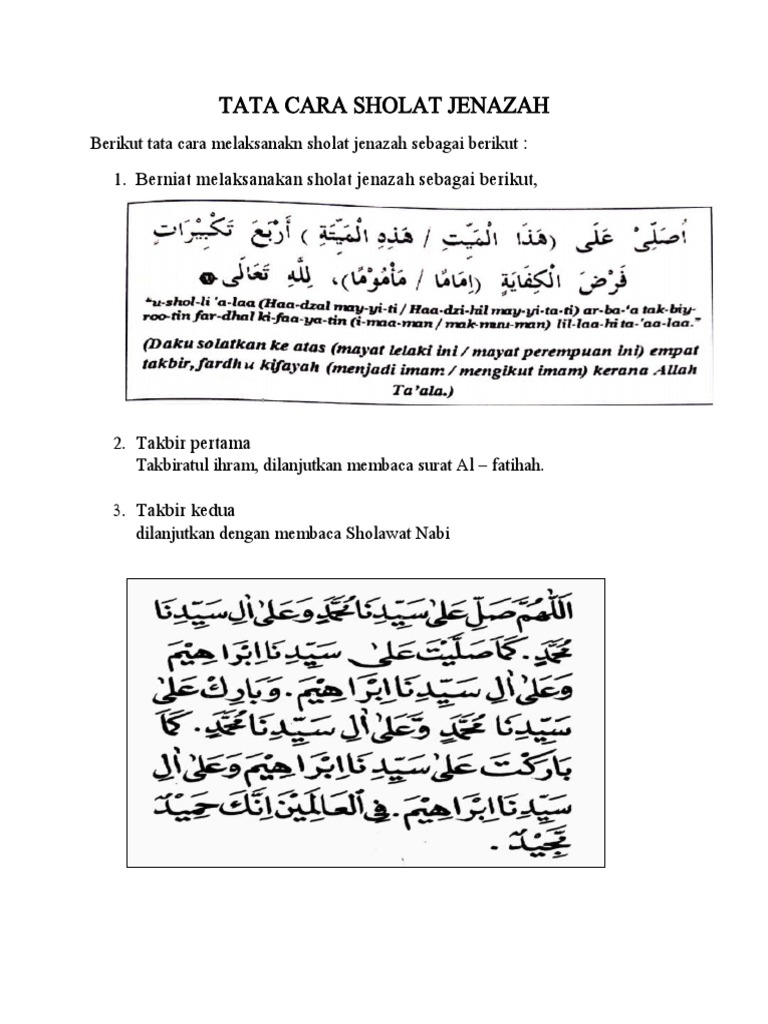 TATA CARA SHOLAT JENAZAH
Berikut tata cara melaksanakn sholat jenazah sebagai berikut :
1. Berniat melaksanakan sholat jenazah sebagai berikut,
اُصَلِّىْ عَلَى (هَذَا الْمَيِّتِ / هَذِهِ الْمَيِّتَةِ) أَرْبَعَ تَكْبِيْرَاتٍ
فَرْضَ الْكِفَايَةِ (اِمَامًا / مَأْمُوْمًا)، لِلَّهِ تَعَالَى
"u-shol-li 'a-laa (Haa-dzal may-yi-ti / Haa-dzi-hil may-yi-ta-ti) ar-ba-'a tak-biy-
roo-tin far-dhal ki-faa-ya-tin (i-maa-man / mak-muu-man) lil-laa-hi ta-'aa-laa."
(Daku solatkan ke atas (mayat lelaki ini / mayat perempuan ini) empat
takbir, fardhu kifayah (menjadi imam / mengikut imam) kerana Allah
Ta'ala.)
2. Takbir pertama
Takbiratul ihram, dilanjutkan membaca surat Al – fatihah.
3. Takbir kedua
dilanjutkan dengan membaca Sholawat Nabi
اَللّٰهُمَّ صَلِّ عَلٰى سَيِّدِنَا مُحَمَّدٍ وَعَلٰى اٰلِ سَيِّدِنَا
مُحَمَّدٍ. كَمَا صَلَّيْتَ عَلٰى سَيِّدِنَا اِبْرَاهِيْمَ
وَعَلٰى اٰلِ سَيِّدِنَا اِبْرَاهِيْمَ. وَبَارِكْ عَلٰى
سَيِّدِنَا مُحَمَّدٍ وَعَلٰى اٰلِ سَيِّدِنَا مُحَمَّدٍ. كَمَا
بَارَكْتَ عَلٰى سَيِّدِنَا اِبْرَاهِيْمَ وَعَلٰى اٰلِ
سَيِّدِنَا اِبْرَاهِيْمَ. فِى الْعَالَمِيْنَ اِنَّكَ حَمِيْدٌ
مَّجِيْدٌ.